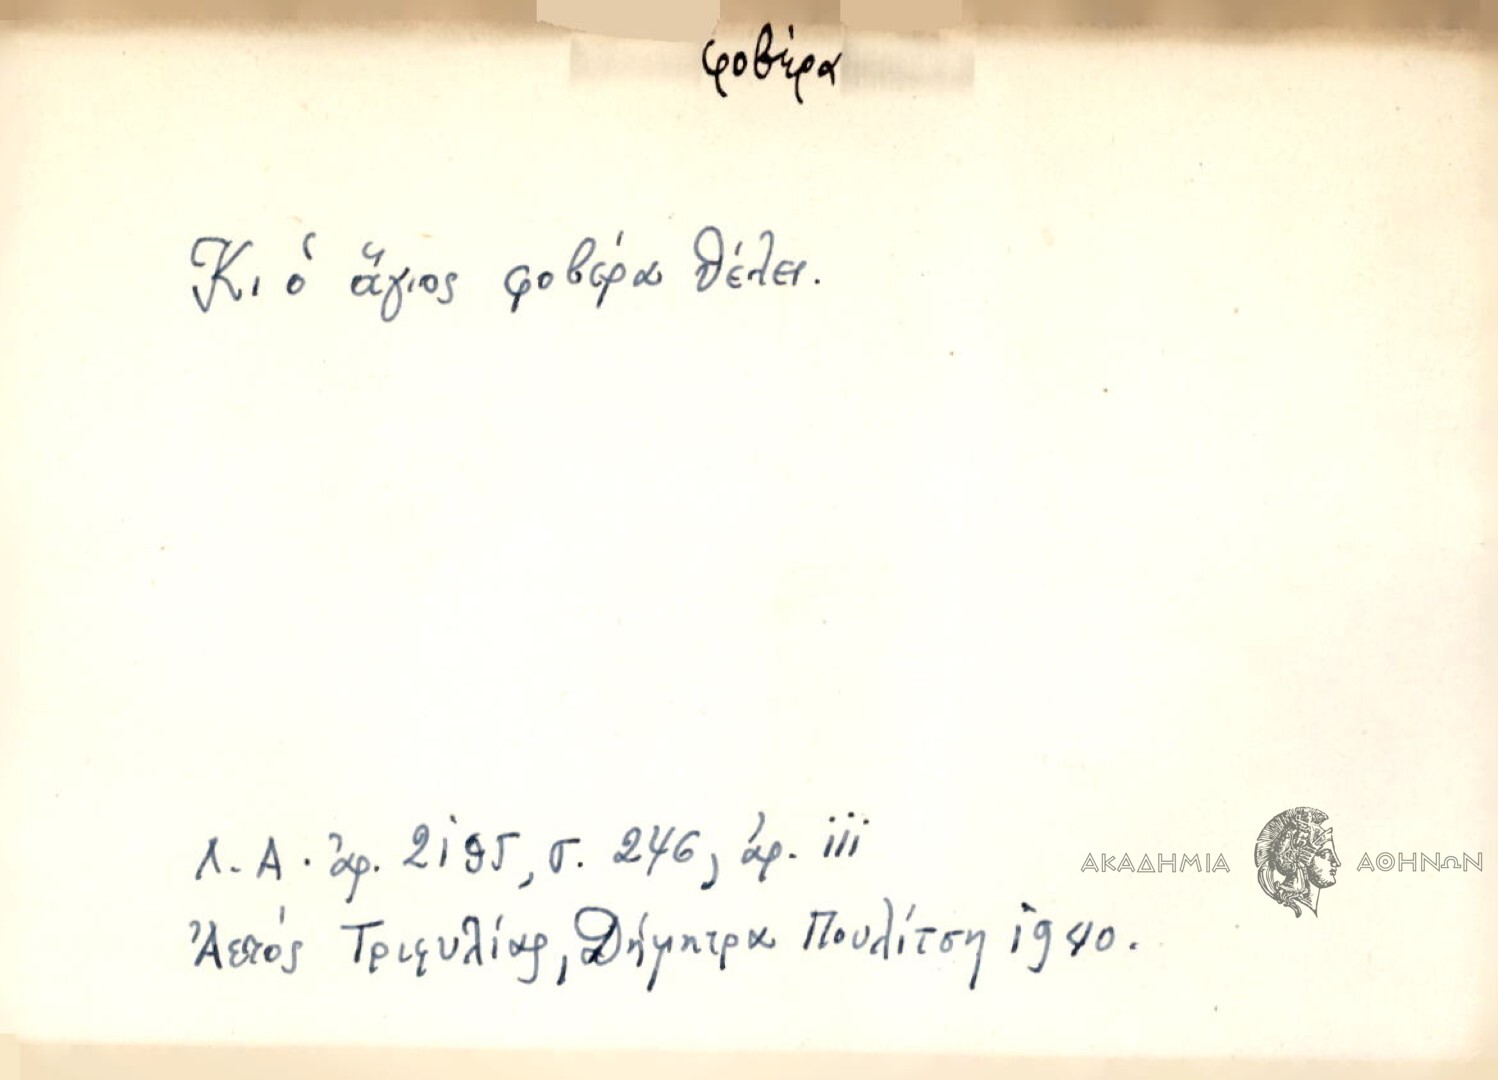 φοβέρα
Κι ὁ ἅγιος φοβέρα θέλει.
Λ. Α. ἀρ. 2195, σ. 246, ἀρ. 111
ΑΚΑΔΗΜΙΑ ΑΘΗΝΩΝ
Ἀετός Τριφυλίας, Δήμητρα Πουλίτση 1940.